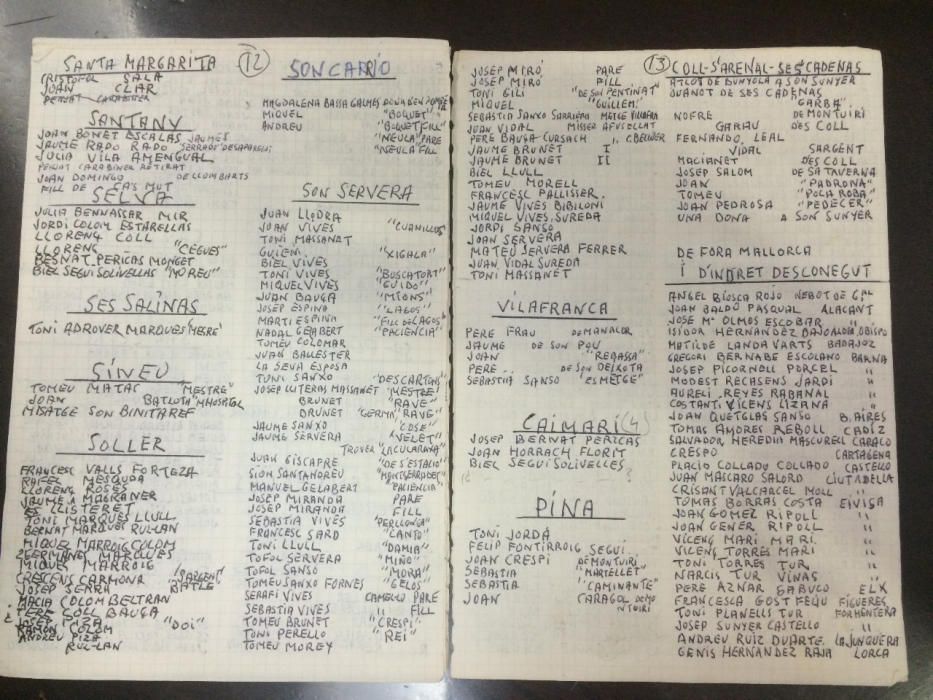 SANTA MARGARITA
CRISTOFOL SALA
JOAN CLAR
PENJAT CARABINER
SANTANY
JOAN BONET ESCALAS JAUMES
JAUME RADO RADO SERRADE DESAPAREGUI
JULIA VILA AMENGUAL
PENJAT CARABINER RETIRAT
JOAN DOMINGO DE LLOMBARTS
FILL DE CA'S MUT
SELVA
JULIA BENNASSAR MIR
JORDI COLOM ESTARELLAS
LLORENÇ COLL
LLORENÇ "CEGUES"
BERNAT PERICAS MONGET
BIEL SEGUI SOLIVELLAS "MOREU"
SES SALINAS
TONI ADROVER MARQUES "MERE"
SINEU
TOMEU MATAS "MESTRE"
JOAN BATLOTA "M HOSPITAL
MISATGE SON BINITAREF
SOLLER
FRANCESC VALLS FORTEZA
RAFEL MESQUDA
LLORENÇ ROSES
JAUME J MAGRANER
ES LLISTERET
TONI MARQUES LLULL
BERNAT MARQUES RUL-LAN
MIQUEL MARROIG COLOM
2 GERMANES MARQUES
MIQUEL MARROIG
CRESCENS CARMONA "SARGENT"
JOSEP SERRA BATLE
MACIA COLOM BELTRAN
TERE COLL BAUÇA
JOSEP PIZA "DOI"
RAMON COLOM
ANDREU PIZA
RUL-LAN
12
SON CARRIO
MAGDALENA BASSA GALMES DONA D'EN POMPE
MIQUEL "BOQUET"
ANDREU "BOQUET FILL"
"NEULA" PARE
"NEULA FILL
SON SERVERA
JUAN LLODRA
JOAN VIVES "CUANILLOS"
TONI MASSANET
GUIEM "XIGALA"
BIEL VIVES
TONI VIVES "BUSCATORT"
MIQUEL VIVES "GUIDO"
JUAN BAUÇA "MIONS"
JOSEP ESPINA "LAGOS"
MARTI ESPINA "FILL DE LAGOS"
NADAL GELABERT "PACIENCIA"
TOMEU COLOMAR
JUAN BALLESTER
LA SEVA ESPOSA
TONI SANXO "DESCARTONS"
JOSEP LLITERAS MASSANET "MESTRE"
BRUNET "RAVE"
BRUNET "GERMA" RAVE"
JAUME SANXO "COSE"
JAUME SERVERA "VELET"
TROVER "LACULARANA"
JUAN GISCAFRE "DE S'ESTACIO"
SION SANTANDREU "MONTSERRADET"
MANUEL GELABERT "PACIENCIA
JOSEP MIRANDA PARE
JOSEP MIRANDA FILL
SEBASTIA VIVES "PERLLONGA"
FRANCESC SARD "CANTO"
TONI LLULL "DAMIA"
TOFOL SERVERA "MIÑO"
TOFOL SANSO "MORA"
TOMEU SANXO FORNES "GELOS"
SERAFI VIVES CAMELLO PARE
SEBASTIA VIVES " FILL
TOMEU BRUNET "CRESPI"
TONI PERELLO "REI"
TOMEU MOREY
JOSEP MIRÓ PARE
JOSEP MIRÓ FILL
TONI GILI "DE SON PENTINAT"
MIQUEL "GUILLEM"
SEBASTIA SANXO SARRIERA METGE VILAFRA
JOAN VIDAL MISSER AFUSELLAT
PERE BAUÇA CURSACH " C. BELLVER
JAUME BRUNET I
JAUME BRUNET II
BIEL LLULL
TOMEU MORELL
FRANCESC PALLISSER
JAUME VIVES BIBILONI
MIQUEL VIVES SUREDA
JORDI SANSO
JOAN SERVERA
MATEU SERVERA FERRER
JUAN VIDAL SUREDA
TONI MASSANET
VILAFRANCA
PERE FRAU DE MANACOR
JAUME DE SON POU
JOAN "REBASSA"
PERE DE SON DEIXOTA
SEBASTIA SANSO "ES METGE"
CAIMARI (4)
JOSEP BERNAT PERICAS
JOAN HORRACH FLORIT
BIEL SEGUI SOLIVELLES
PINA
TONI JORDA
FELIP FONTIRROIG SEGUI
JOAN CRESPI DE MONTUIRI
SEBASTIA "MARTELLET"
SEBASTIA "CAMINANTE"
JOAN CARAGOL DE MO
NTUIRI
13 COLL-S'ARENAL-SES CADENAS
ATLOT DE BUNYOLA A SON SUNYER
JUANOT DE SES CADENAS
"GARBA"
NOFRE DE MONTUIRI
GARAU DES COLL
FERNANDO LEAL
VIDAL SARGENT
MACIANET DES COLL
JOSEP SALOM DE SA TAVERNA
JOAN "PADRONA"
TOMEU "POLA ROBA"
JOAN PEDROSA "PEDECER"
UNA DONA A SON SUNYER
DE FORA MALLORCA
I D'INDRET DESCONEGUT
ANGEL BIOSCA ROJO NEBOT DE GAL
JOAN BALDÚ PASQUAL ALACANT
JOSE Mª OLMOS ESCOBAR
ISIDOR HERNANDEZ BAJO ALDIA OBISPO
MATILDE LANDA VARTS BADAJOZ
GREGORI BERNABE ESCOLANO BARNA
JOSEP PICORNELL PORCEL "
MODEST RECASENS JARDI "
AURELI REYES RABANAL "
COSTANTI VICENS LIZANA "
JOAN QUETGLAS SANSO B. AIRES
TOMAS AMORES REBOLL CADIZ
SALVADOR HEREDIA MASCURELL CARACO
CRESPO CARTAGENA
PLACIO COLLADO COLLADO CASTELLO
JUAN MASCARO SALORD CIUTADELLA
CRISANT VALCARCEL MOLL "
TOMAS BORRAS COSTA EIVISA
JOAN GOMEZ RIPOLL "
JOAN GENER RIPOLL "
VICENÇ MARI MARI "
VICENÇ TORRES MARI "
TONI TORRES TUR "
NARCIS TUR VIÑAS "
PERE AZNAR GABUCO ELX
FRANCESCA GOST FELIU FIGUERES
TONI PLANELLS TUR FORMENTERA
JOSEP SUNYER CASTELLO "
ANDREU RUIZ DUARTE LA JUNQUERA
GENIS HERNANDEZ RAJA LORCA